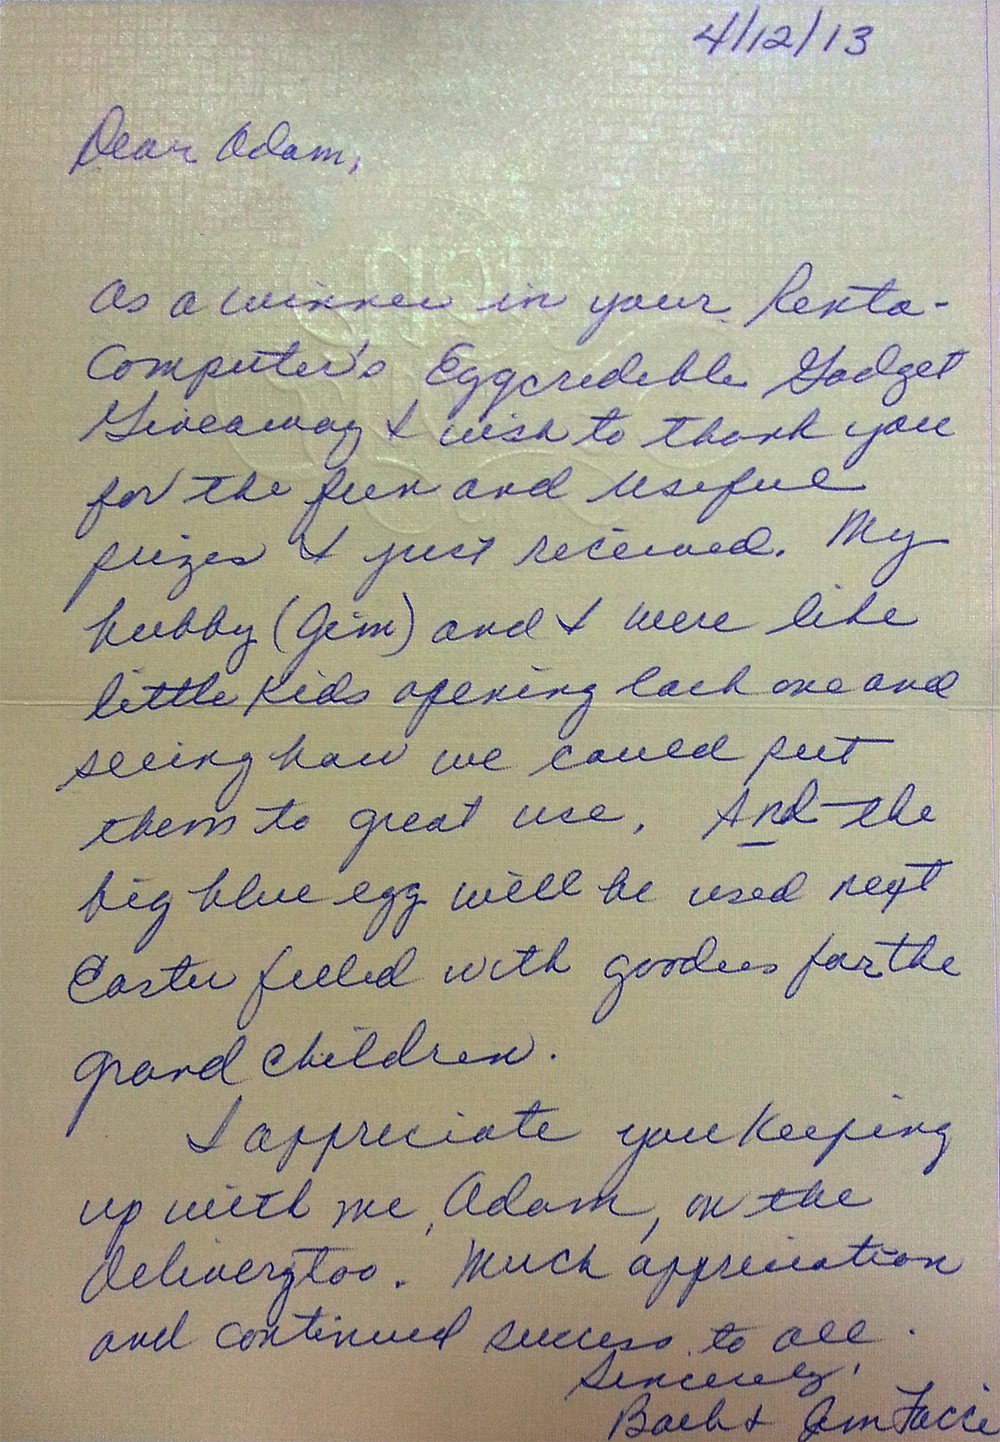 4/12/13
Dear Adam,
As a winner in your Renta-
Computer's Eggcredible Gadget
Giveaway I wish to thank you
for the fun and useful
prizes I just received. My
hubby (Jim) and I were like
little kids opening each one and
seeing how we could put
them to great use. And the
big blue egg will be used next
Easter filled with goodies for the
grand children.
I appreciate you keeping
up with me, Adam, on the
delivery too. Much appreciation
and continued success to all.
Sincerely,
Barb & Jim